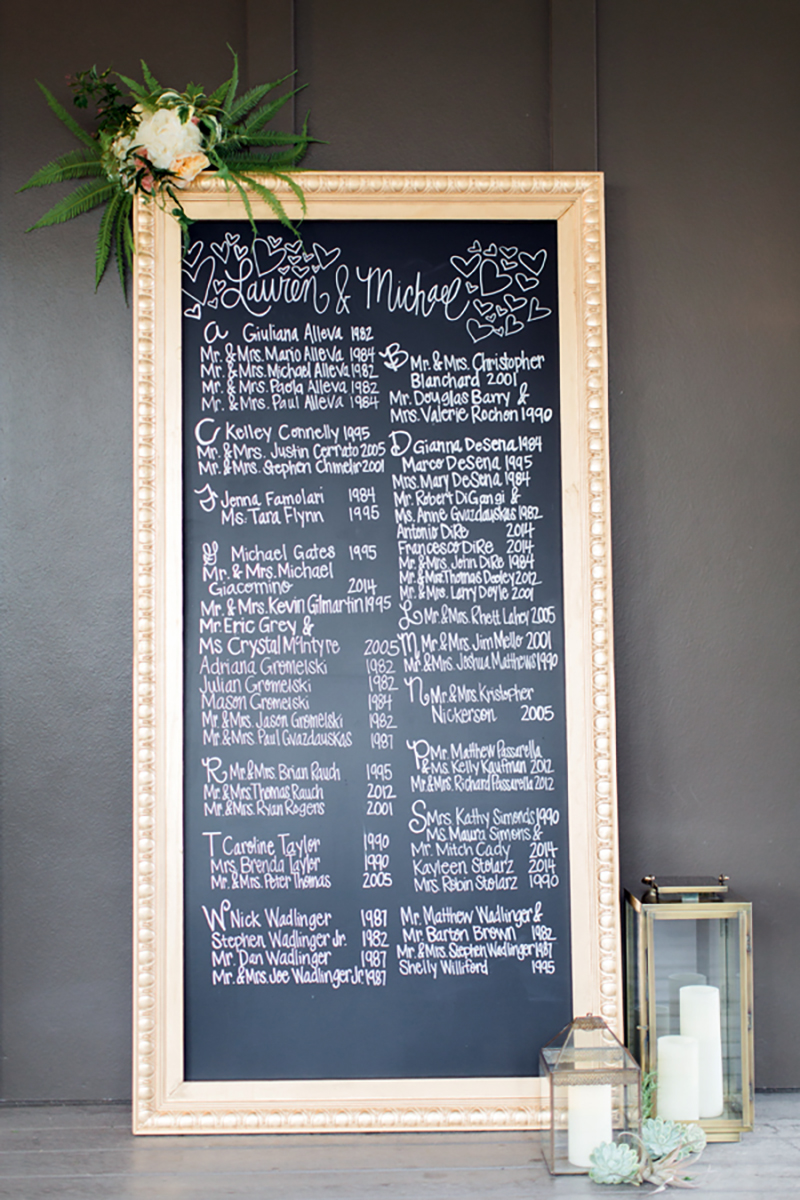 Lauren & Michael
A Giuliana Alleva 1982
Mr. & Mrs. Mario Alleva 1984
Mr. & Mrs. Michael Alleva 1982
Mr. & Mrs. Paola Alleva 1982
Mr. & Mrs. Paul Alleva 1984
B Mr. & Mrs. Christopher
Blanchard 2001
Mr. Douglas Barry &
Mrs. Valerie Rochon 1990
C Kelley Connelly 1995
Mr. & Mrs. Justin Cerrato 2005
Mr. & Mrs. Stephen Chmelir 2001
D Gianna DeSena 1984
Marco DeSena 1995
Mrs. Mary DeSena 1984
Mr. Robert DiGangi &
Ms. Anne Gvazdauskas 1982
Antonio DiRe 2014
Francesco DiRe 2014
Mr. & Mrs. John DiRe 1984
Mr. & Mrs. Thomas Dooley 2012
Mr. & Mrs. Larry Doyle 2001
F Jenna Famolari 1984
Ms. Tara Flynn 1995
G Michael Gates 1995
Mr. & Mrs. Michael
Giacomino 2014
Mr. & Mrs. Kevin Gilmartin 1995
Mr. Eric Grey &
Ms Crystal McIntyre 2005
Adriana Gromelski 1982
Julian Gromelski 1982
Mason Gromelski 1984
Mr. & Mrs. Jason Gromelski 1982
Mr. & Mrs. Paul Gvazdauskas 1987
L Mr. & Mrs. Rhett Lahey 2005
M Mr. & Mrs. Jim Mello 2001
Mr. & Mrs. Joshua Matthews 1990
N Mr. & Mrs. Kristopher
Nickerson 2005
P Mr. Matthew Passarella
& Ms. Kelly Kaufman 2012
Mr. & Mrs. Richard Passarella 2012
R Mr. & Mrs. Brian Rauch 1995
Mr. & Mrs. Thomas Rauch 2012
Mr. & Mrs. Ryan Rogers 2001
S Mrs. Kathy Simonds 1990
Ms. Maura Simons &
Mr. Mitch Cady 2014
Kayleen Stolarz 2014
Mrs Robin Stolarz 1990
T Caroline Taylor 1990
Mrs Brenda Taylor 1990
Mr. & Mrs. Peter Thomas 2005
W Nick Wadlinger 1987
Stephen Wadlinger Jr. 1982
Mr. Dan Wadlinger 1987
Mr. & Mrs. Joe Wadlinger Jr. 1987
Mr. Matthew Wadlinger &
Mr. Barton Brown 1982
Mr. & Mrs. Stephen Wadlinger 1987
Shelly Williford 1995